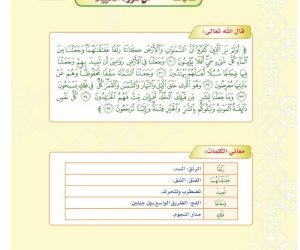 من سورة الأنبياء
قال الله تعالى:
﴿ أَوَلَمْ يَرَ الَّذِينَ كَفَرُوا أَنَّ السَّمَاوَاتِ وَالْأَرْضَ كَانَتَا رَتْقًا فَفَتَقْنَاهُمَا وَجَعَلْنَا مِنَ
الْمَاءِ كُلَّ شَيْءٍ حَيٍّ أَفَلَا يُؤْمِنُونَ ﴿٣٠﴾ وَجَعَلْنَا فِي الْأَرْضِ رَوَاسِيَ أَنْ تَمِيدَ بِهِمْ وَجَعَلْنَا
فِيهَا فِجَاجًا سُبُلًا لَعَلَّهُمْ يَهْتَدُونَ ﴿٣١﴾ وَجَعَلْنَا السَّمَاءَ سَقْفًا مَحْفُوظًا وَهُمْ عَنْ
آيَاتِهَا مُعْرِضُونَ ﴿٣٢﴾ وَهُوَ الَّذِي خَلَقَ اللَّيْلَ وَالنَّهَارَ وَالشَّمْسَ وَالْقَمَرَ كُلٌّ فِي فَلَكٍ يَسْبَحُونَ
﴿٣٣﴾ وَمَا جَعَلْنَا لِبَشَرٍ مِنْ قَبْلِكَ الْخُلْدَ أَفَإِنْ مِتَّ فَهُمُ الْخَالِدُونَ ﴿٣٤﴾ كُلُّ نَفْسٍ
ذَائِقَةُ الْمَوْتِ وَنَبْلُوكُمْ بِالشَّرِّ وَالْخَيْرِ فِتْنَةً وَإِلَيْنَا تُرْجَعُونَ ﴿٣٥﴾
معاني الكلمات:
رَتْقًا الرتق: السد.
فَفَتَقْنَاهُمَا الفتق: الشق.
تَمِيدَ تضطرب وتتحرك.
فِجَاجًا الفج: الطريق الواسع بين جبلين.
فَلَكٍ مدار النجوم.